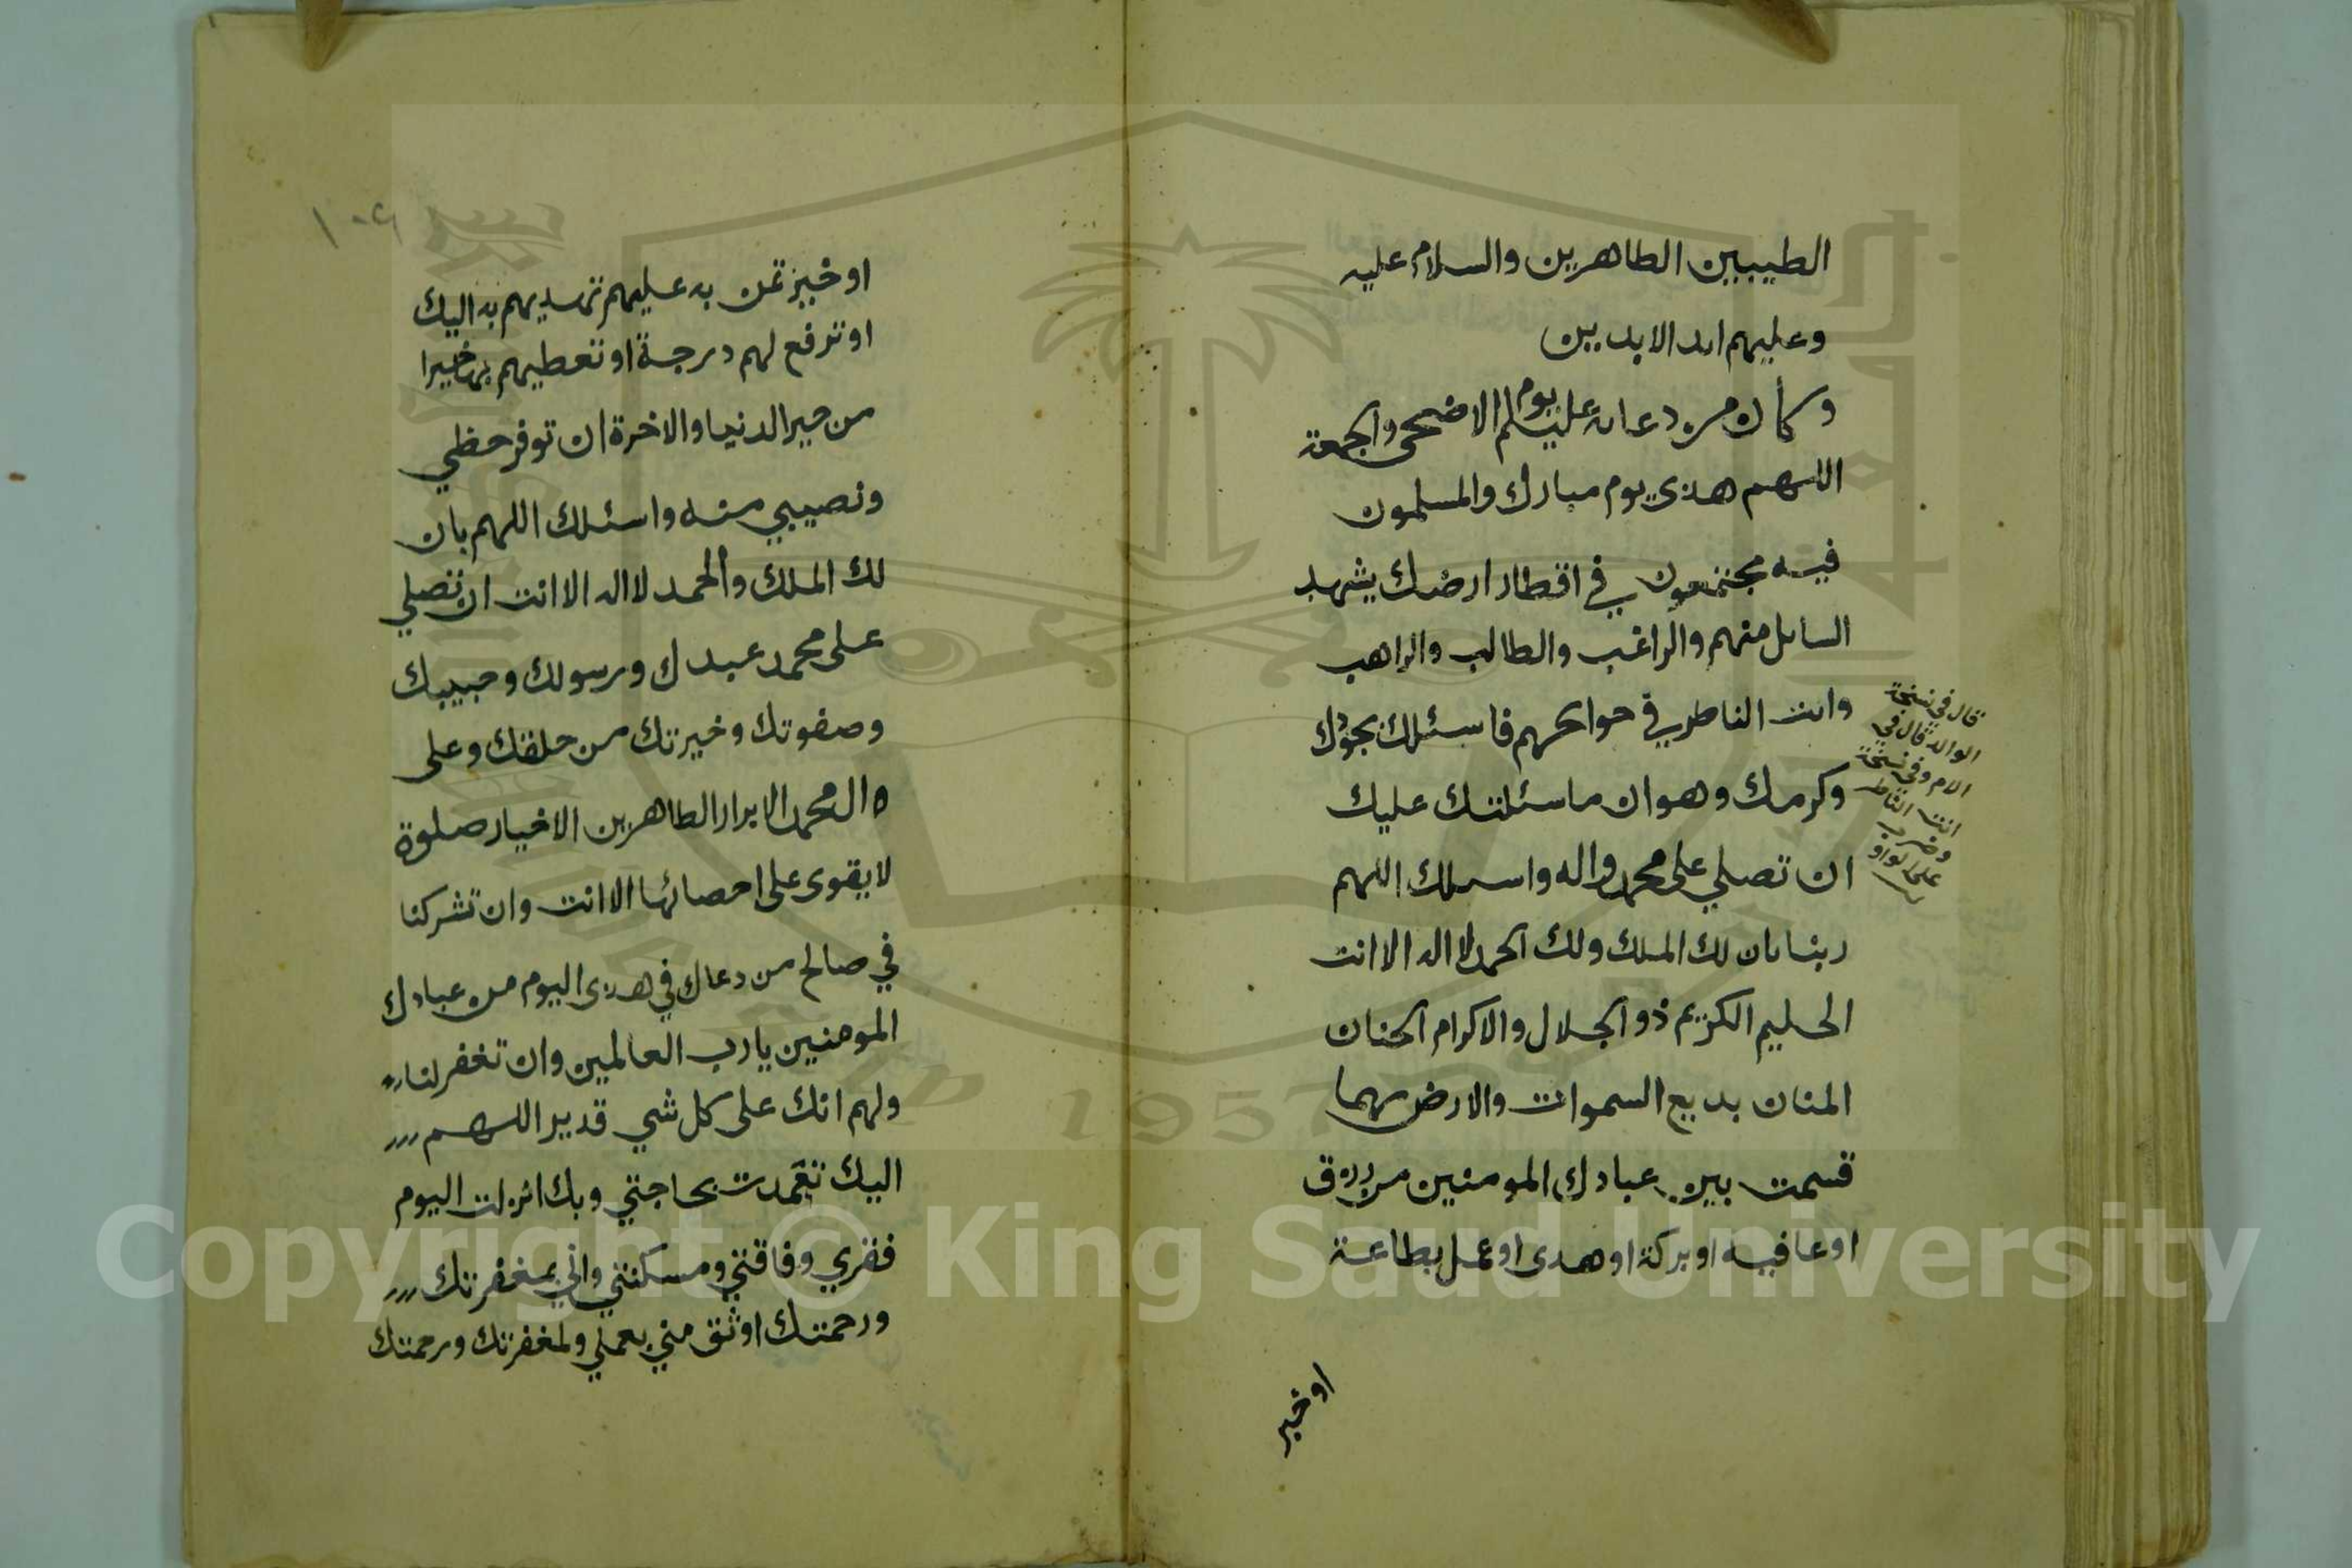 الطيبين الطاهرين والسلام عليه
وعليهم ابد الابدين
وكان من دعائه عليه السلم يوم الاضحى والجمعة
اللهم هذى يوم مبارك والمسلمون
فيه مجتمعون في اقطار ارضك يشهد
السايل منهم والراغب والطالب والراهب
وانت الناظر في حوائجهم فاسئلك بجودك
وكرمك وهوان ما سئلتك عليك
ان تصلي على محمد واله واسئلك اللهم
ربنا بان لك الملك ولك الحمد لا اله الا انت
الحليم الكريم ذو الجلال والاكرام الحنان
المنان بديع السموات والارض مهما
قسمت بين عبادك المومنين من رزق
او عافيه او بركة او هدى او عمل بطاعة
او خير
قال في نسخة
الوالد قال في
الام وفي نسخة
انت الناظر
وضرب
على الواو
١٠٩
او خير تمن به عليهم تهديهم به اليك
او ترفع لهم درجة او تعطيهم بها خيرا
من خير الدنيا والاخرة ان توفر حظي
ونصيبي منه واسئلك اللهم بان
لك الملك والحمد لا اله الا انت ان تصلي
على محمد عبدك ورسولك وحبيبك
وصفوتك وخيرتك من خلقك وعلى
ال محمد الابرار الطاهرين الاخيار صلوة
لا يقوى على احصائها الا انت وان تشركنا
في صالح من دعاك في هذى اليوم من عبادك
المومنين يا رب العالمين وان تغفر لنا
ولهم انك على كل شي قدير اللهم
اليك تعمدت بحاجتي وبك انزلت اليوم
فقري وفاقتي ومسكنتي واني بمغفرتك
ورحمتك اوثق مني بعملي ولمغفرتك ورحمتك
1957
Copyright © King Saud University